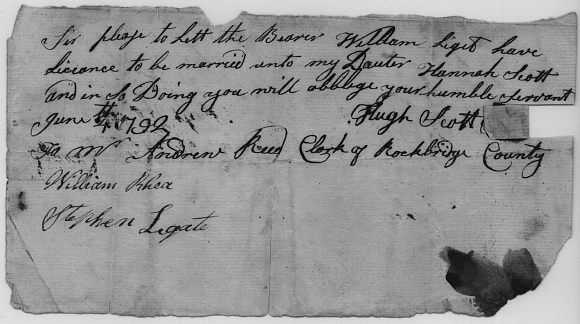 Sir please to lett the Bearer William Ligit have
liciance to be married unto my Dauter Hannah Scott
and in so Doing you will obblege your humble servant
June th 4 1792 Hugh Scott
To Mr Andrew Reed Clerk of Rockbridge County
William Rhea
Stephen Legate